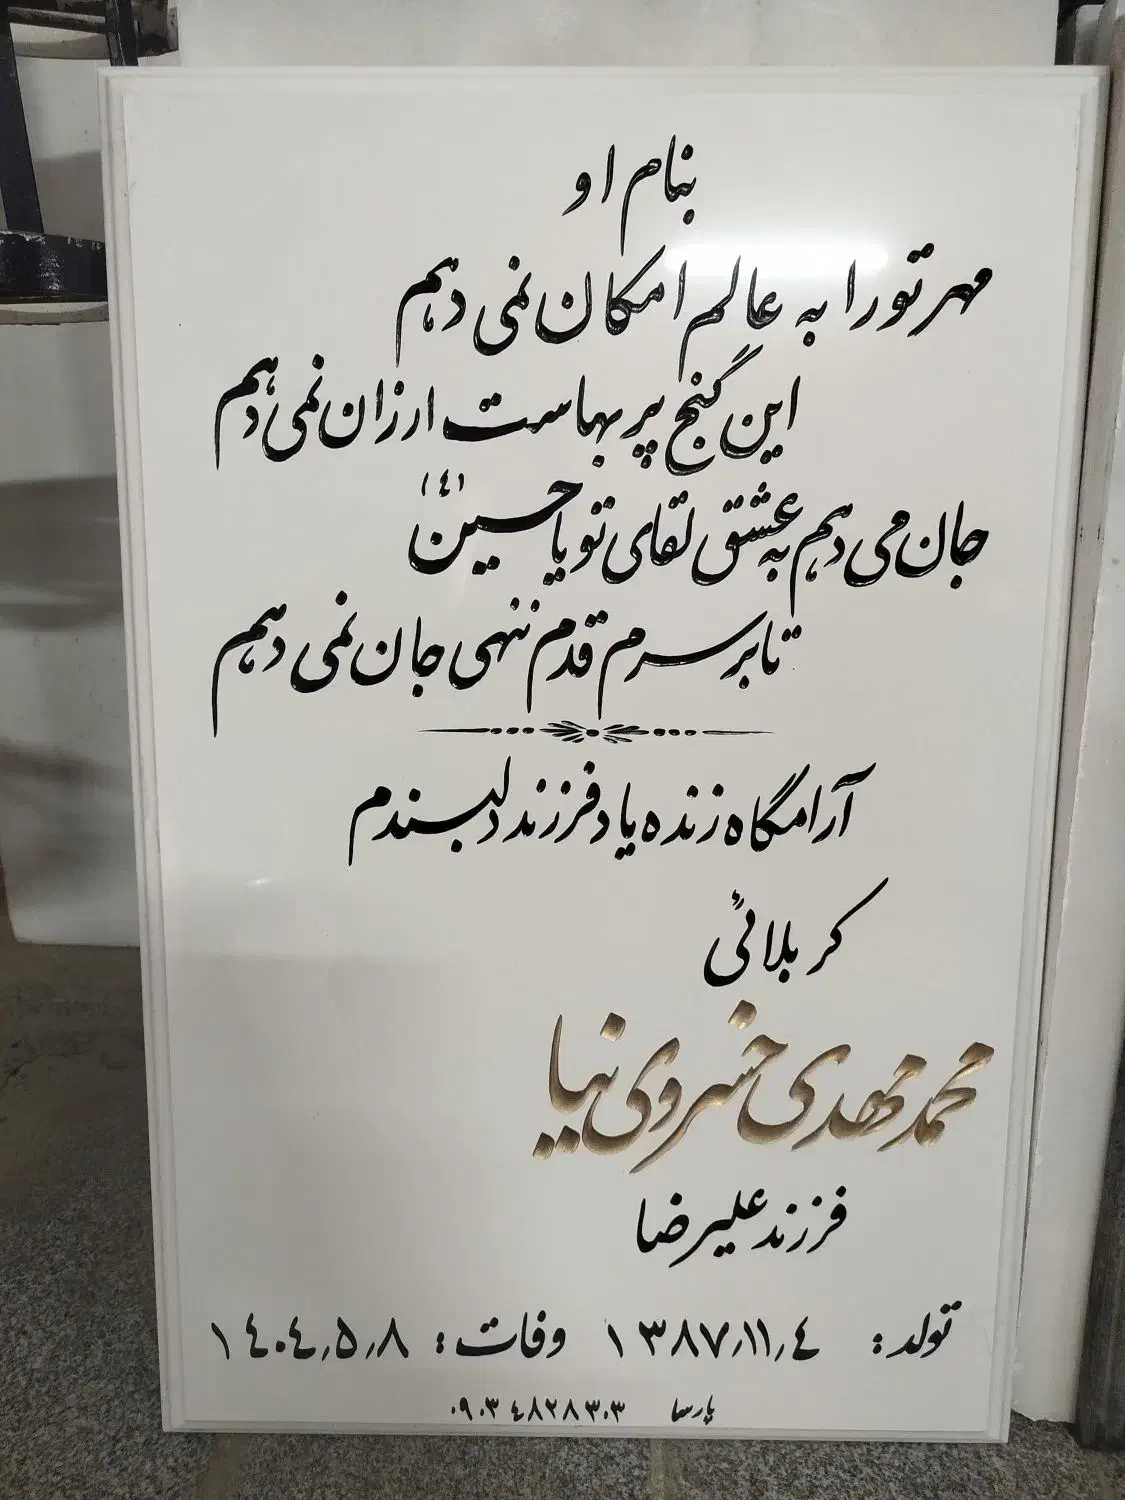 بنام او
مهر تو را به عالم امکان نمی دهم
این گنج پر بهاست ارزان نمی دهم
جان می دهم به عشق لقای تو یا حسین (ع)
تا بر سرم قدم ننهی جان نمی دهم
آرامگاه زنده یاد فرزند دلبندم
کربلائی
محمد مهدی خسروی نیا
فرزند علیرضا
تولد: ۱۳۸۷٫۱۱٫٤ وفات: ۱٤۰٤٫۵٫۸
پارسا ۰۹۰۳٤۸۲۸۳۰۳